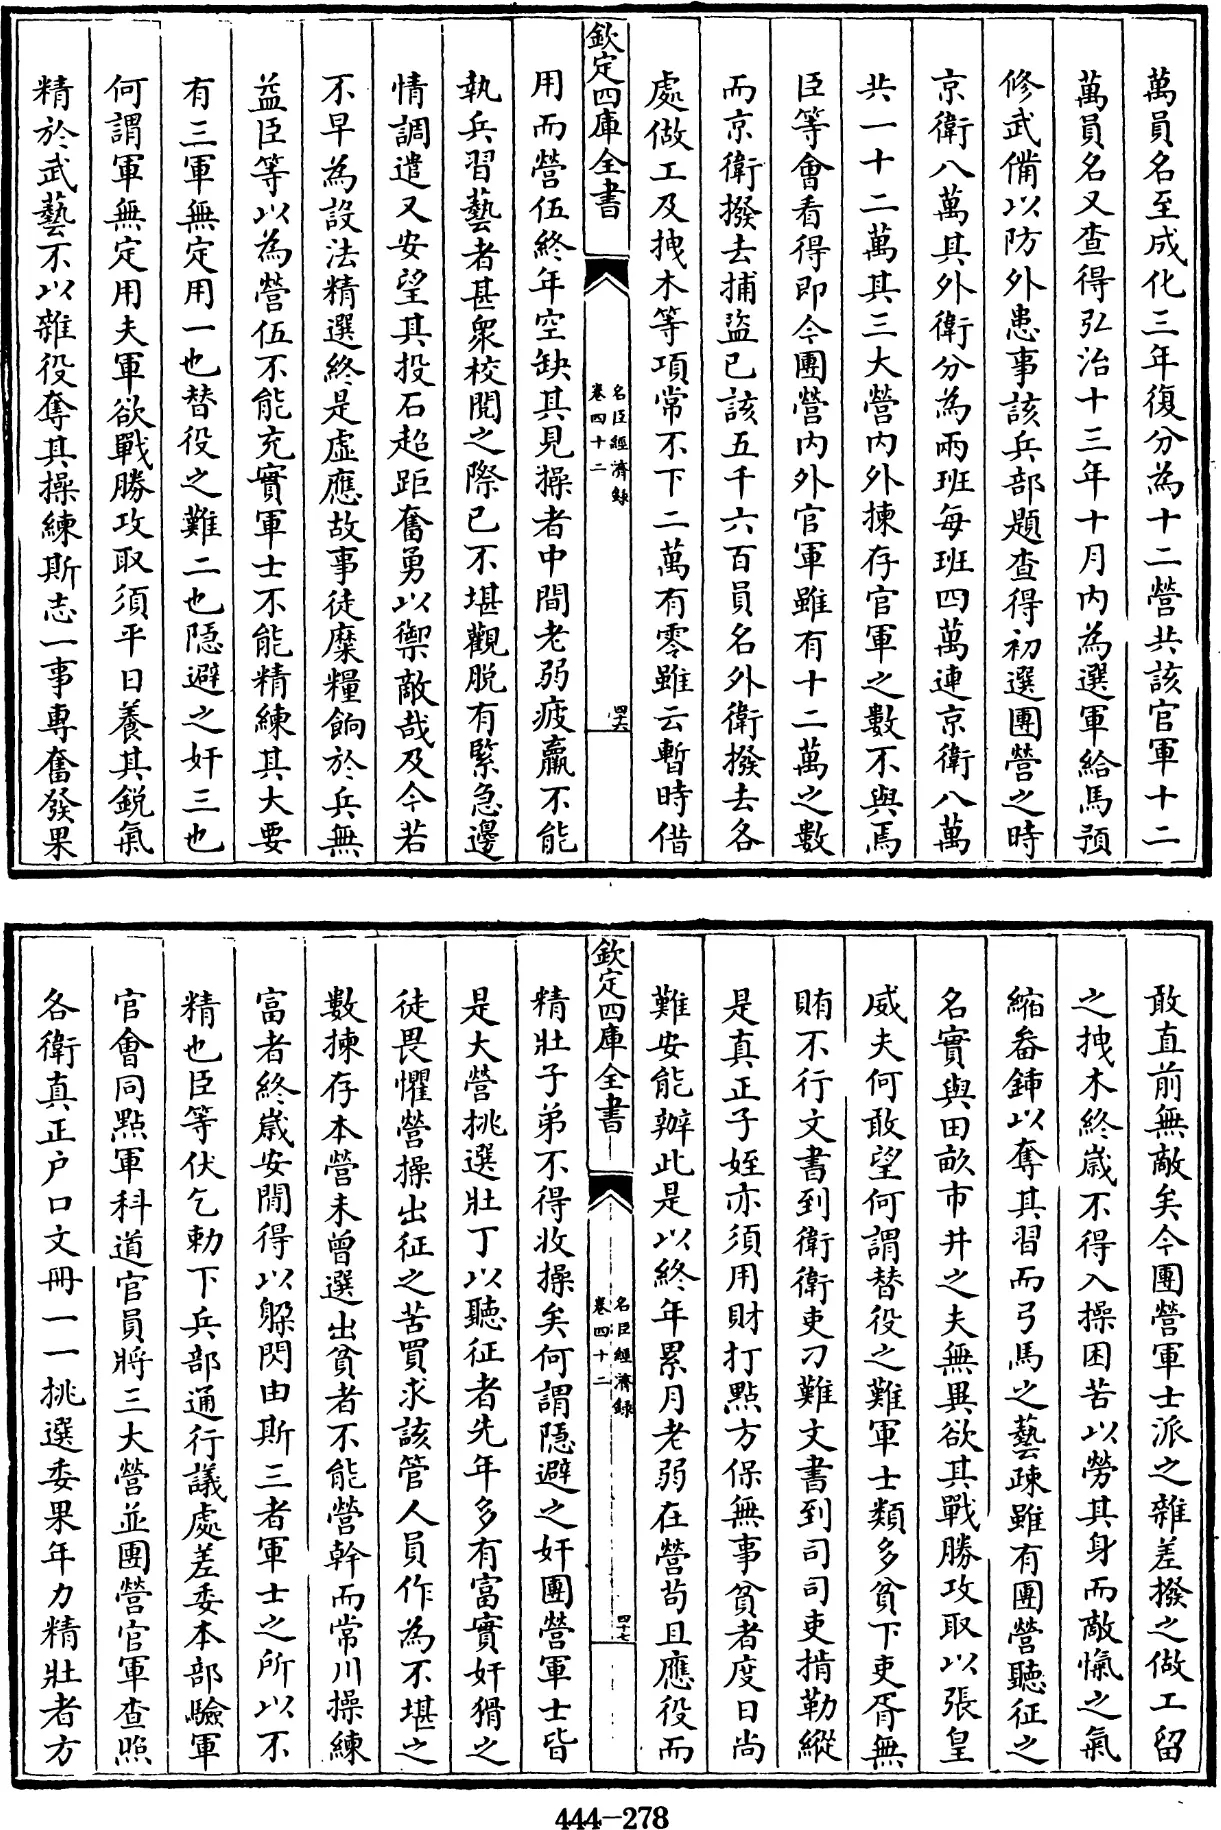 萬員名至成化三年復分為十二營共該官軍十二
萬員名又查得弘治十三年十月内為選軍給馬預
修武備以防外患事該兵部題查得初選團營之時
京衛八萬其外衛分為兩班每班四萬連京衛八萬
共一十二萬其三大營内外揀存官軍之數不與焉
臣等會看得即今團營内外官軍雖有十二萬之數
而京衛撥去捕盜已該五千六百員名外衛撥去各
處做工及拽木等項常不下二萬有零雖云暫時借
欽定四庫全書
名臣經濟録
卷四十二
四十六
用而營伍終年空缺其見操者中間老弱疲羸不能
執兵習藝者甚衆校閲之際已不堪觀脱有緊急邊
情調遣又安望其投石超距奮勇以禦敵哉及今若
不早為設法精選終是虛應故事徒糜糧餉於兵無
益臣等以為營伍不能充實軍士不能精練其大要
有三軍無定用一也替役之難二也隱避之奸三也
何謂軍無定用夫軍欲戰勝攻取須平日養其鋭氣
精於武藝不以雜役奪其操練斯志一事專奮發果
敢直前無敵矣今團營軍士派之雜差撥之做工留
之拽木終歳不得入操困苦以勞其身而敵愾之氣
縮畚鍤以奪其習而弓馬之藝疎雖有團營聽征之
名實與田畝市井之夫無異欲其戰勝攻取以張皇
威夫何敢望何謂替役之難軍士類多貧下吏胥無
賄不行文書到衛衛吏刁難文書到司司吏掯勒縱
是真正子姪亦須用財打點方保無事貧者度日尚
難安能辦此是以終年累月老弱在營苟且應役而
欽定四庫全書
名臣經濟録
卷四十二
四十七
精壯子弟不得收操矣何謂隱避之奸團營軍士皆
是大營挑選壯丁以聽征者先年多有富實奸猾之
徒畏懼營操出征之苦買求該管人員作為不堪之
數揀存本營未曾選出貧者不能營幹而常川操練
富者終歳安閒得以躱閃由斯三者軍士之所以不
精也臣等伏乞勅下兵部通行議處差委本部驗軍
官會同點軍科道官員將三大營並團營官軍查照
各衛真正户口文冊一一挑選委果年力精壯者方
444-278